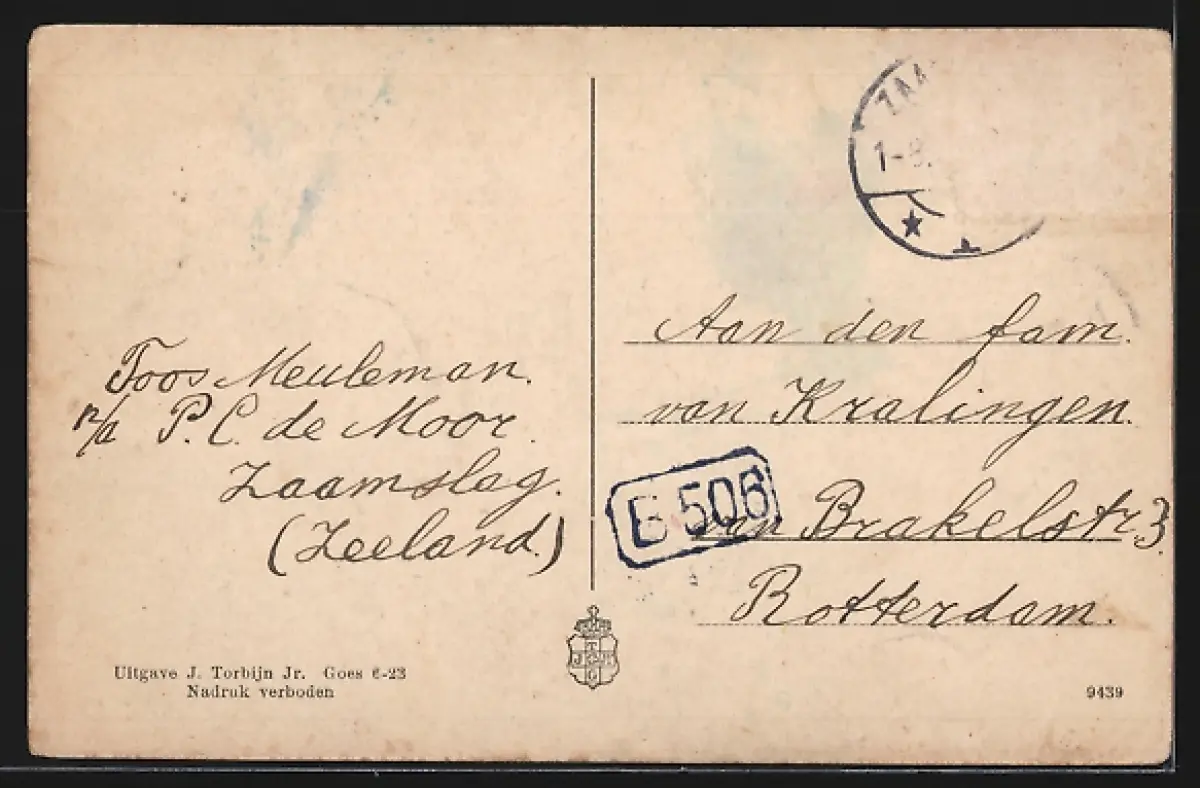 Toos Meuleman.
p/a P. C. de Moor.
Zaamslag.
(Zeeland.)
Uitgave J. Torbijn Jr. Goes 6-23
Nadruk verboden
ZAA
1-8.
Aan den fam.
van Kralingen.
B 506
van Brakelstr. 3
Rotterdam.
9439